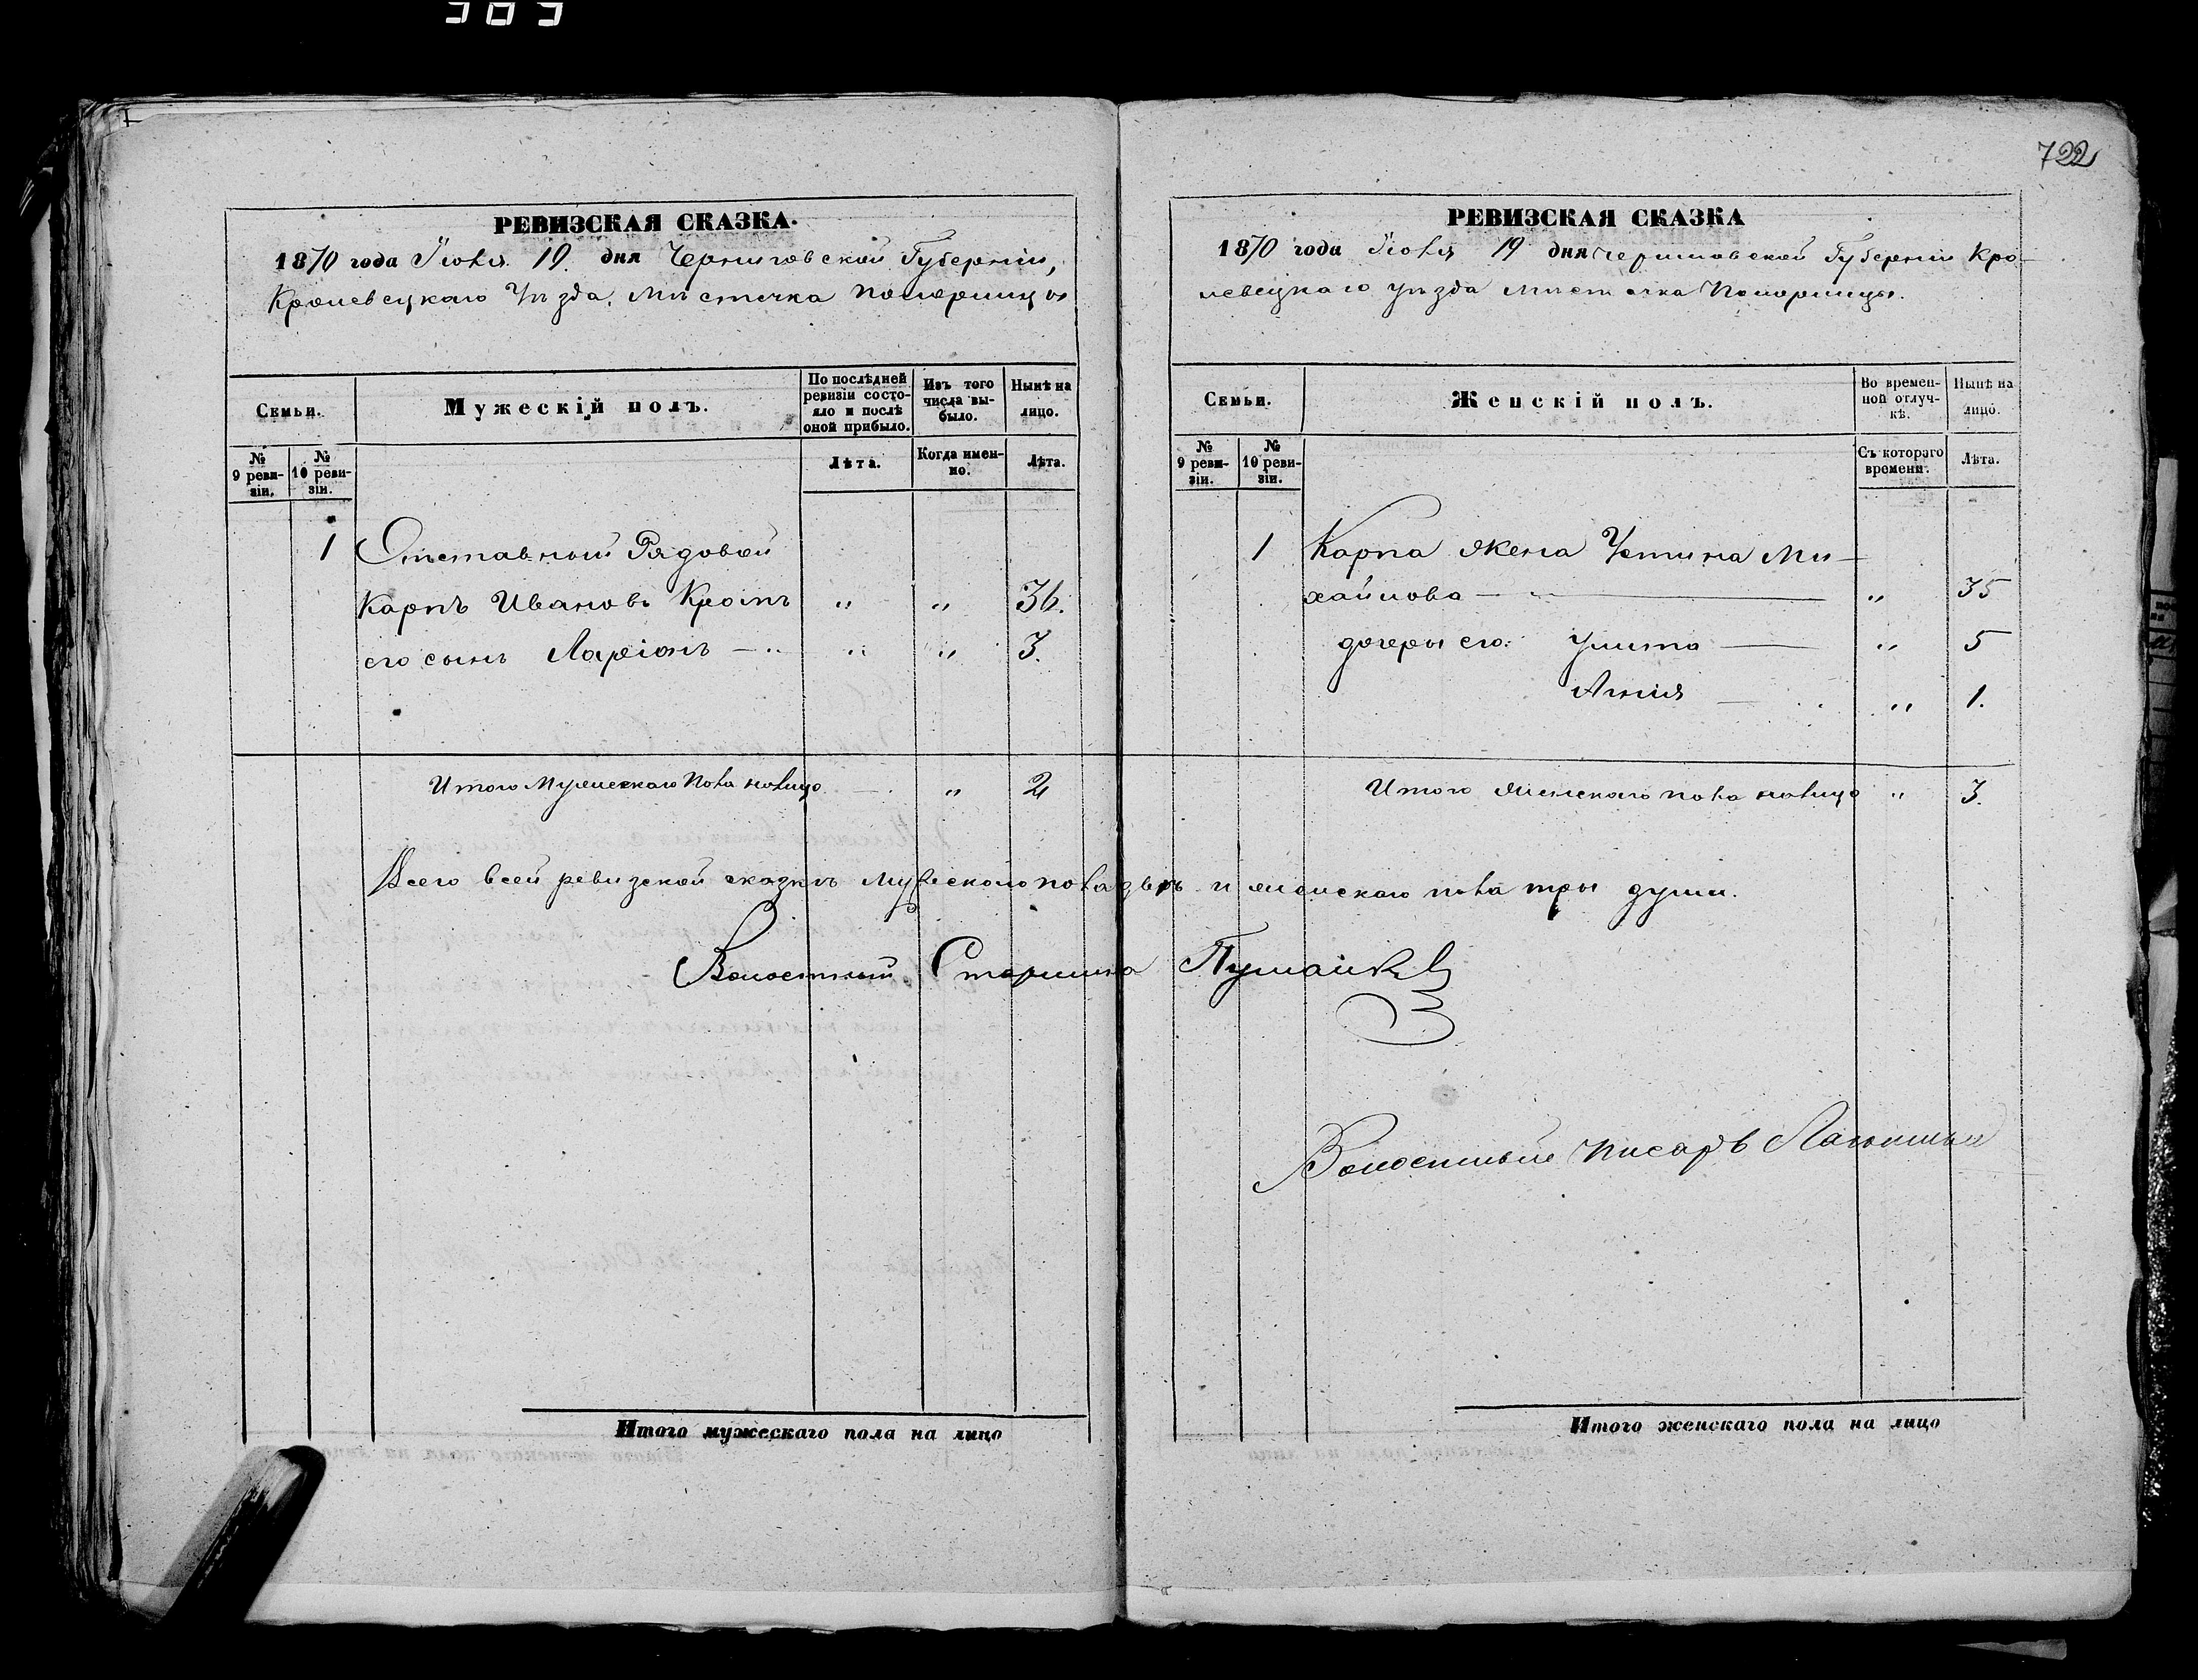 722
РЕВИЗСКАЯ СКАЗКА.
1870 года Іюля 19 дня Черниговской Губерніи,
Кролевецкаго Уѣзда, мѣстечка Понорницы
Семьи.
Мужескій полъ.
По послѣдней ревизіи состояло и послѣ оной прибыло.
Изъ того числа выбыло.
Нынѣ на лицо.
№ 9 ревизіи.
№ 10 ревизіи.
Лѣта.
Когда именно.
Лѣта.
1 Отставный Рядовой
Карпъ Ивановъ Кротъ " " 36.
его сынъ Ларіонъ — " " " 3.
Итого Мужескаго пола налицо — " 2
РЕВИЗСКАЯ СКАЗКА
1870 года Іюля 19 дня Черниговской Губерніи Кро-
левецкаго уѣзда мѣстечка Понорницы.
Семьи.
Женскій полъ.
Во временной отлучкѣ.
Нынѣ на лицо.
№ 9 ревизіи.
№ 10 ревизіи.
Съ котораго времени.
Лѣта.
1 Карпа жена Устина Ми-
хайлова — " 35
дочеры его: Улита — " 5
Анна — " 1.
Итого женскаго пола налицо " 3.
Всего всей ревизской сказкѣ мужескаго пола двѣ и женскаго пола тры души.
Волостный Старшина
Волостный писарь
Итого мужескаго пола на лицо
Итого женскаго пола на лицо